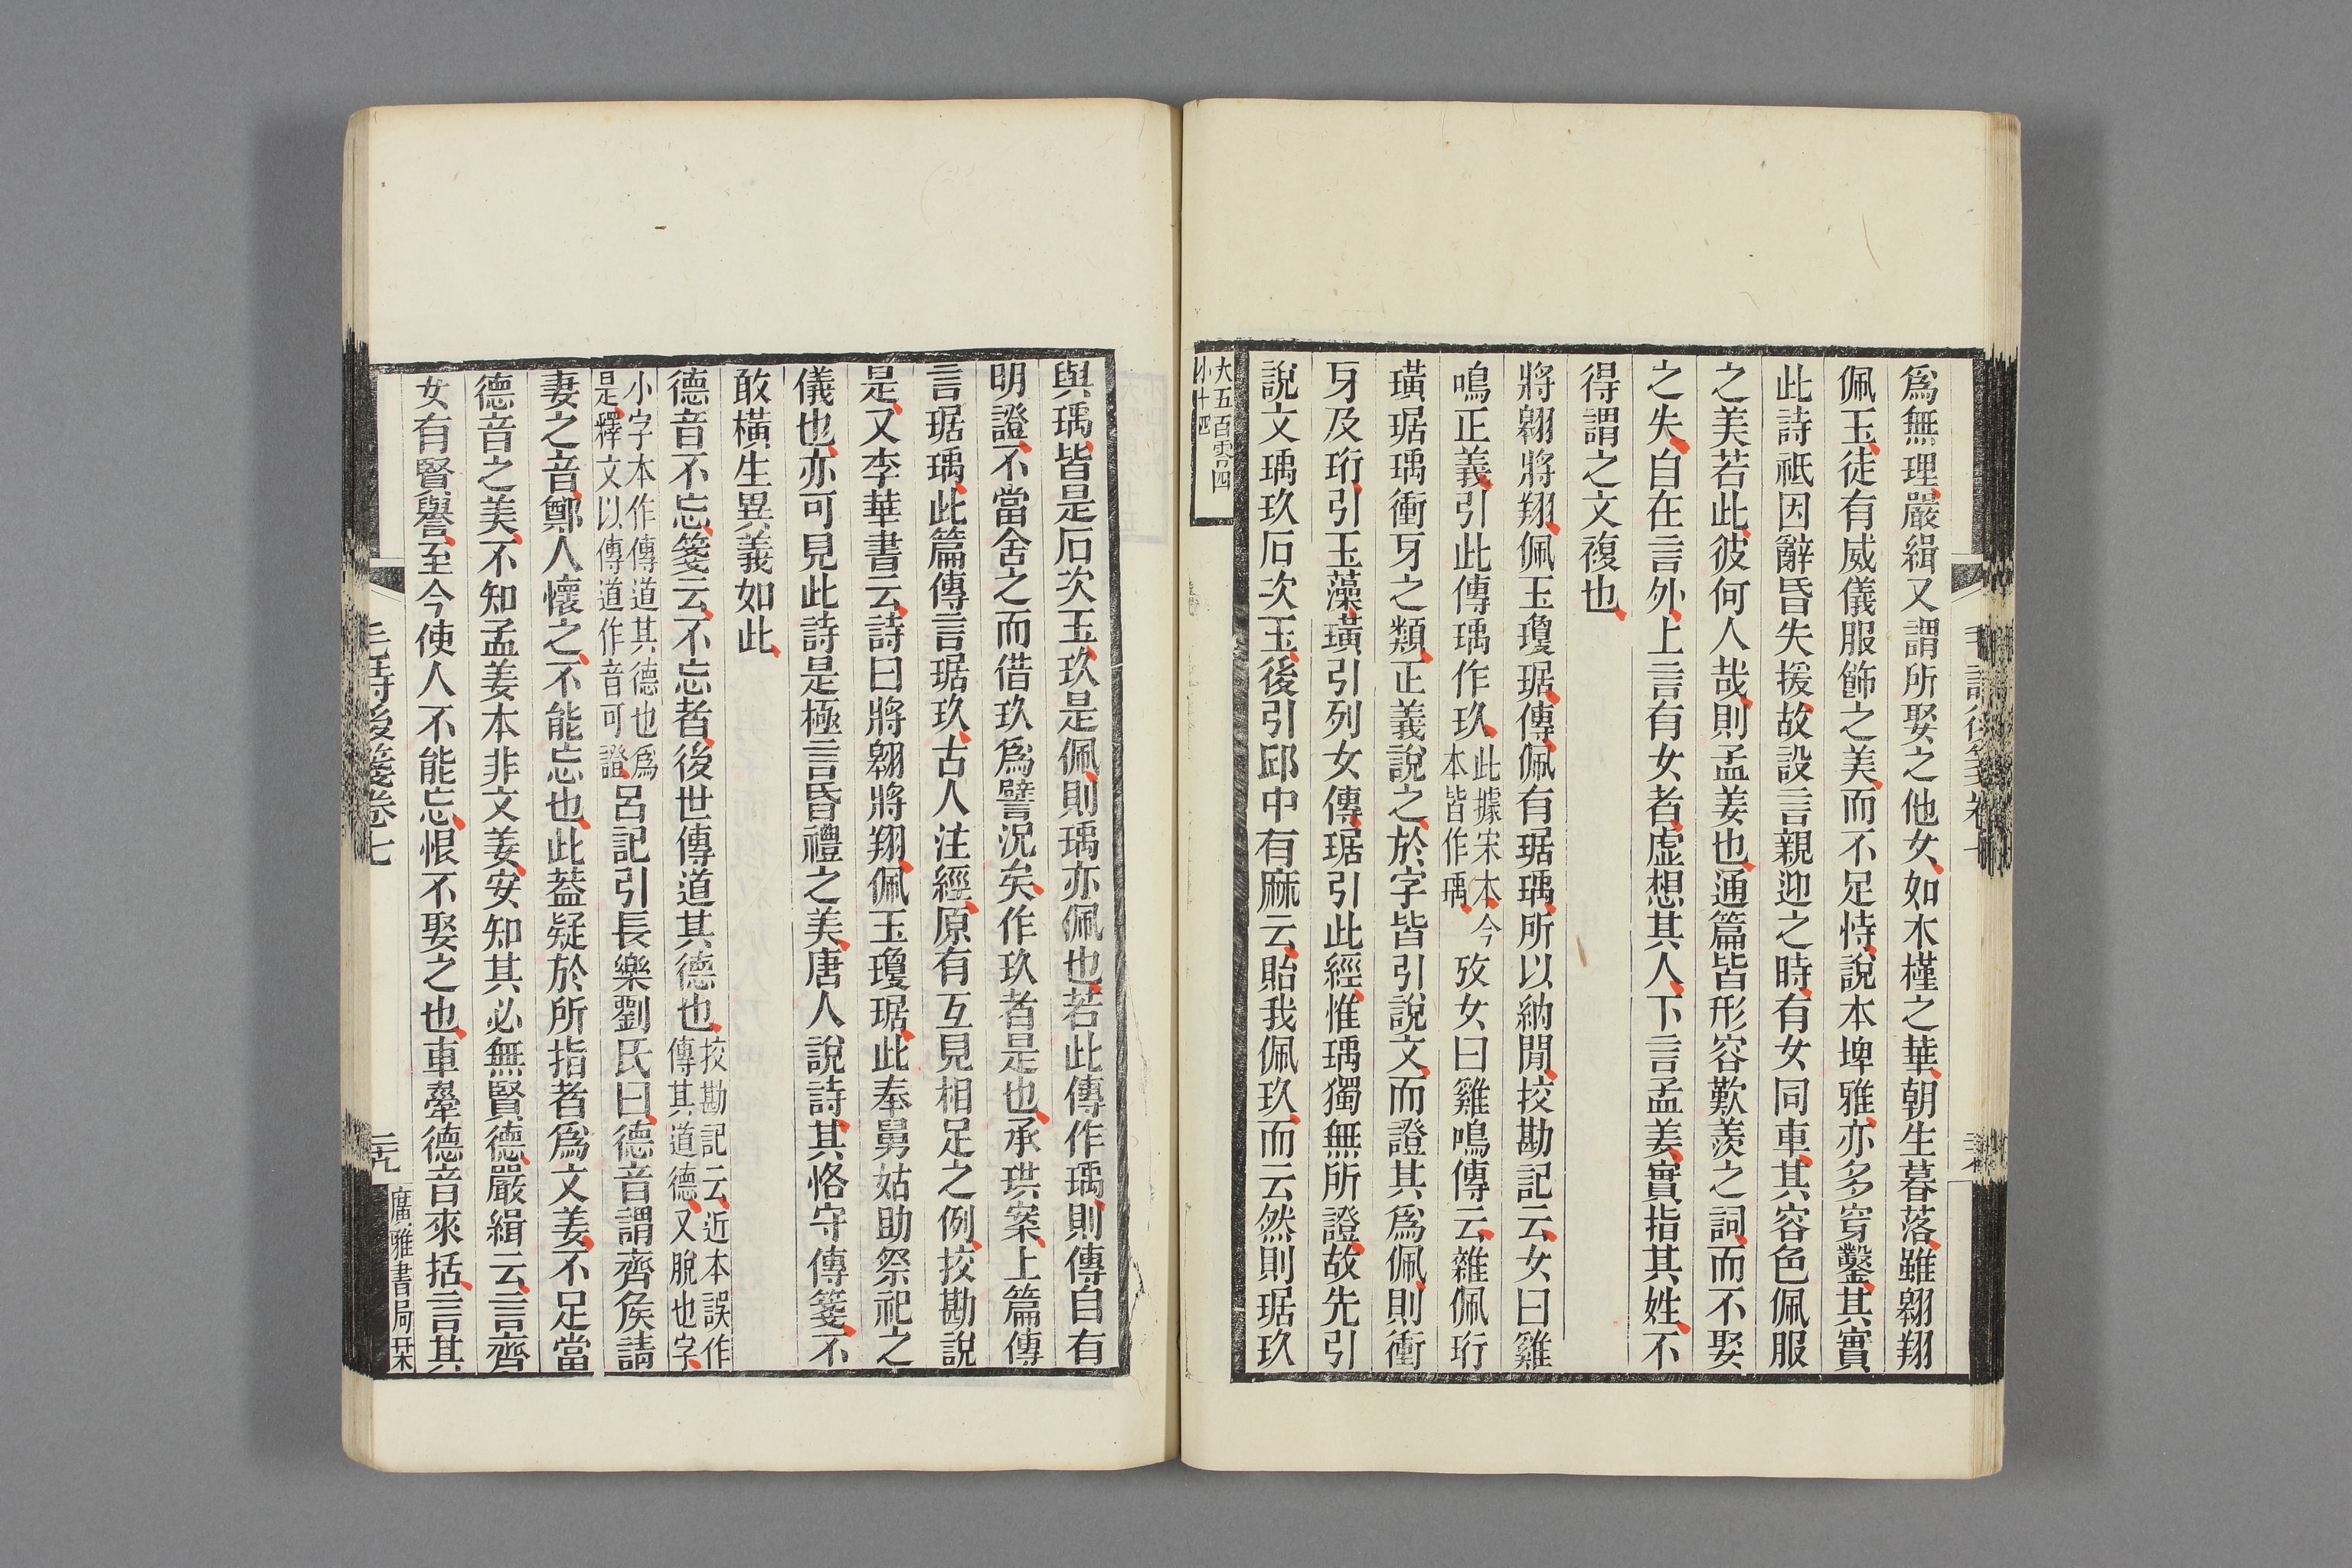 爲無理嚴緝又謂所娶之他女如木槿之華朝生暮落雖翱翔
佩玉徒有威儀服飾之美而不足恃說本埤雅亦多穿鑿其實
此詩祗因辭昏失援故設言親迎之時有女同車其容色佩服
之美若此彼何人哉則孟姜也通篇皆形容歎羨之詞而不娶
之失自在言外上言有女者虛想其人下言孟姜實指其姓不
得謂之文複也
將翱將翔佩玉瓊琚傳佩有琚瑀所以納閒挍勘記云女曰雞
鳴正義引此傳瑀作玖此據宋本今本皆作瑀攷女曰雞鳴傳云雜佩珩
璜琚瑀衝牙之類正義說之於字皆引說文而證其爲佩則衝
牙及珩引玉藻璜引列女傳琚引此經惟瑀獨無所證故先引
說文瑀玖石次玉後引邱中有麻云貽我佩玖而云然則琚玖
大五百零四
小十四
與瑀皆是石次玉玖是佩則瑀亦佩也若此傳作瑀則傳自有
明證不當舍之而借玖爲譬況矣作玖者是也承珙案上篇傳
言琚瑀此篇傳言琚玖古人注經原有互見相足之例挍勘說
是又李華書云詩曰將翱將翔佩玉瓊琚此奉舅姑助祭祀之
儀也亦可見此詩是極言昏禮之美唐人說詩其恪守傳箋不
敢橫生異義如此
德音不忘箋云不忘者後世傳道其德也挍勘記云近本誤作傳其道德又脫也字
小字本作傳道其德也爲是釋文以傳道作音可證呂記引長樂劉氏曰德音謂齊矦請
妻之音鄭人懷之不能忘也此葢疑於所指者爲文姜不足當
德音之美不知孟姜本非文姜安知其必無賢德嚴緝云言齊
女有賢譽至今使人不能忘恨不娶之也車舝德音來括言其
毛詩後箋卷七
廣雅書局栞